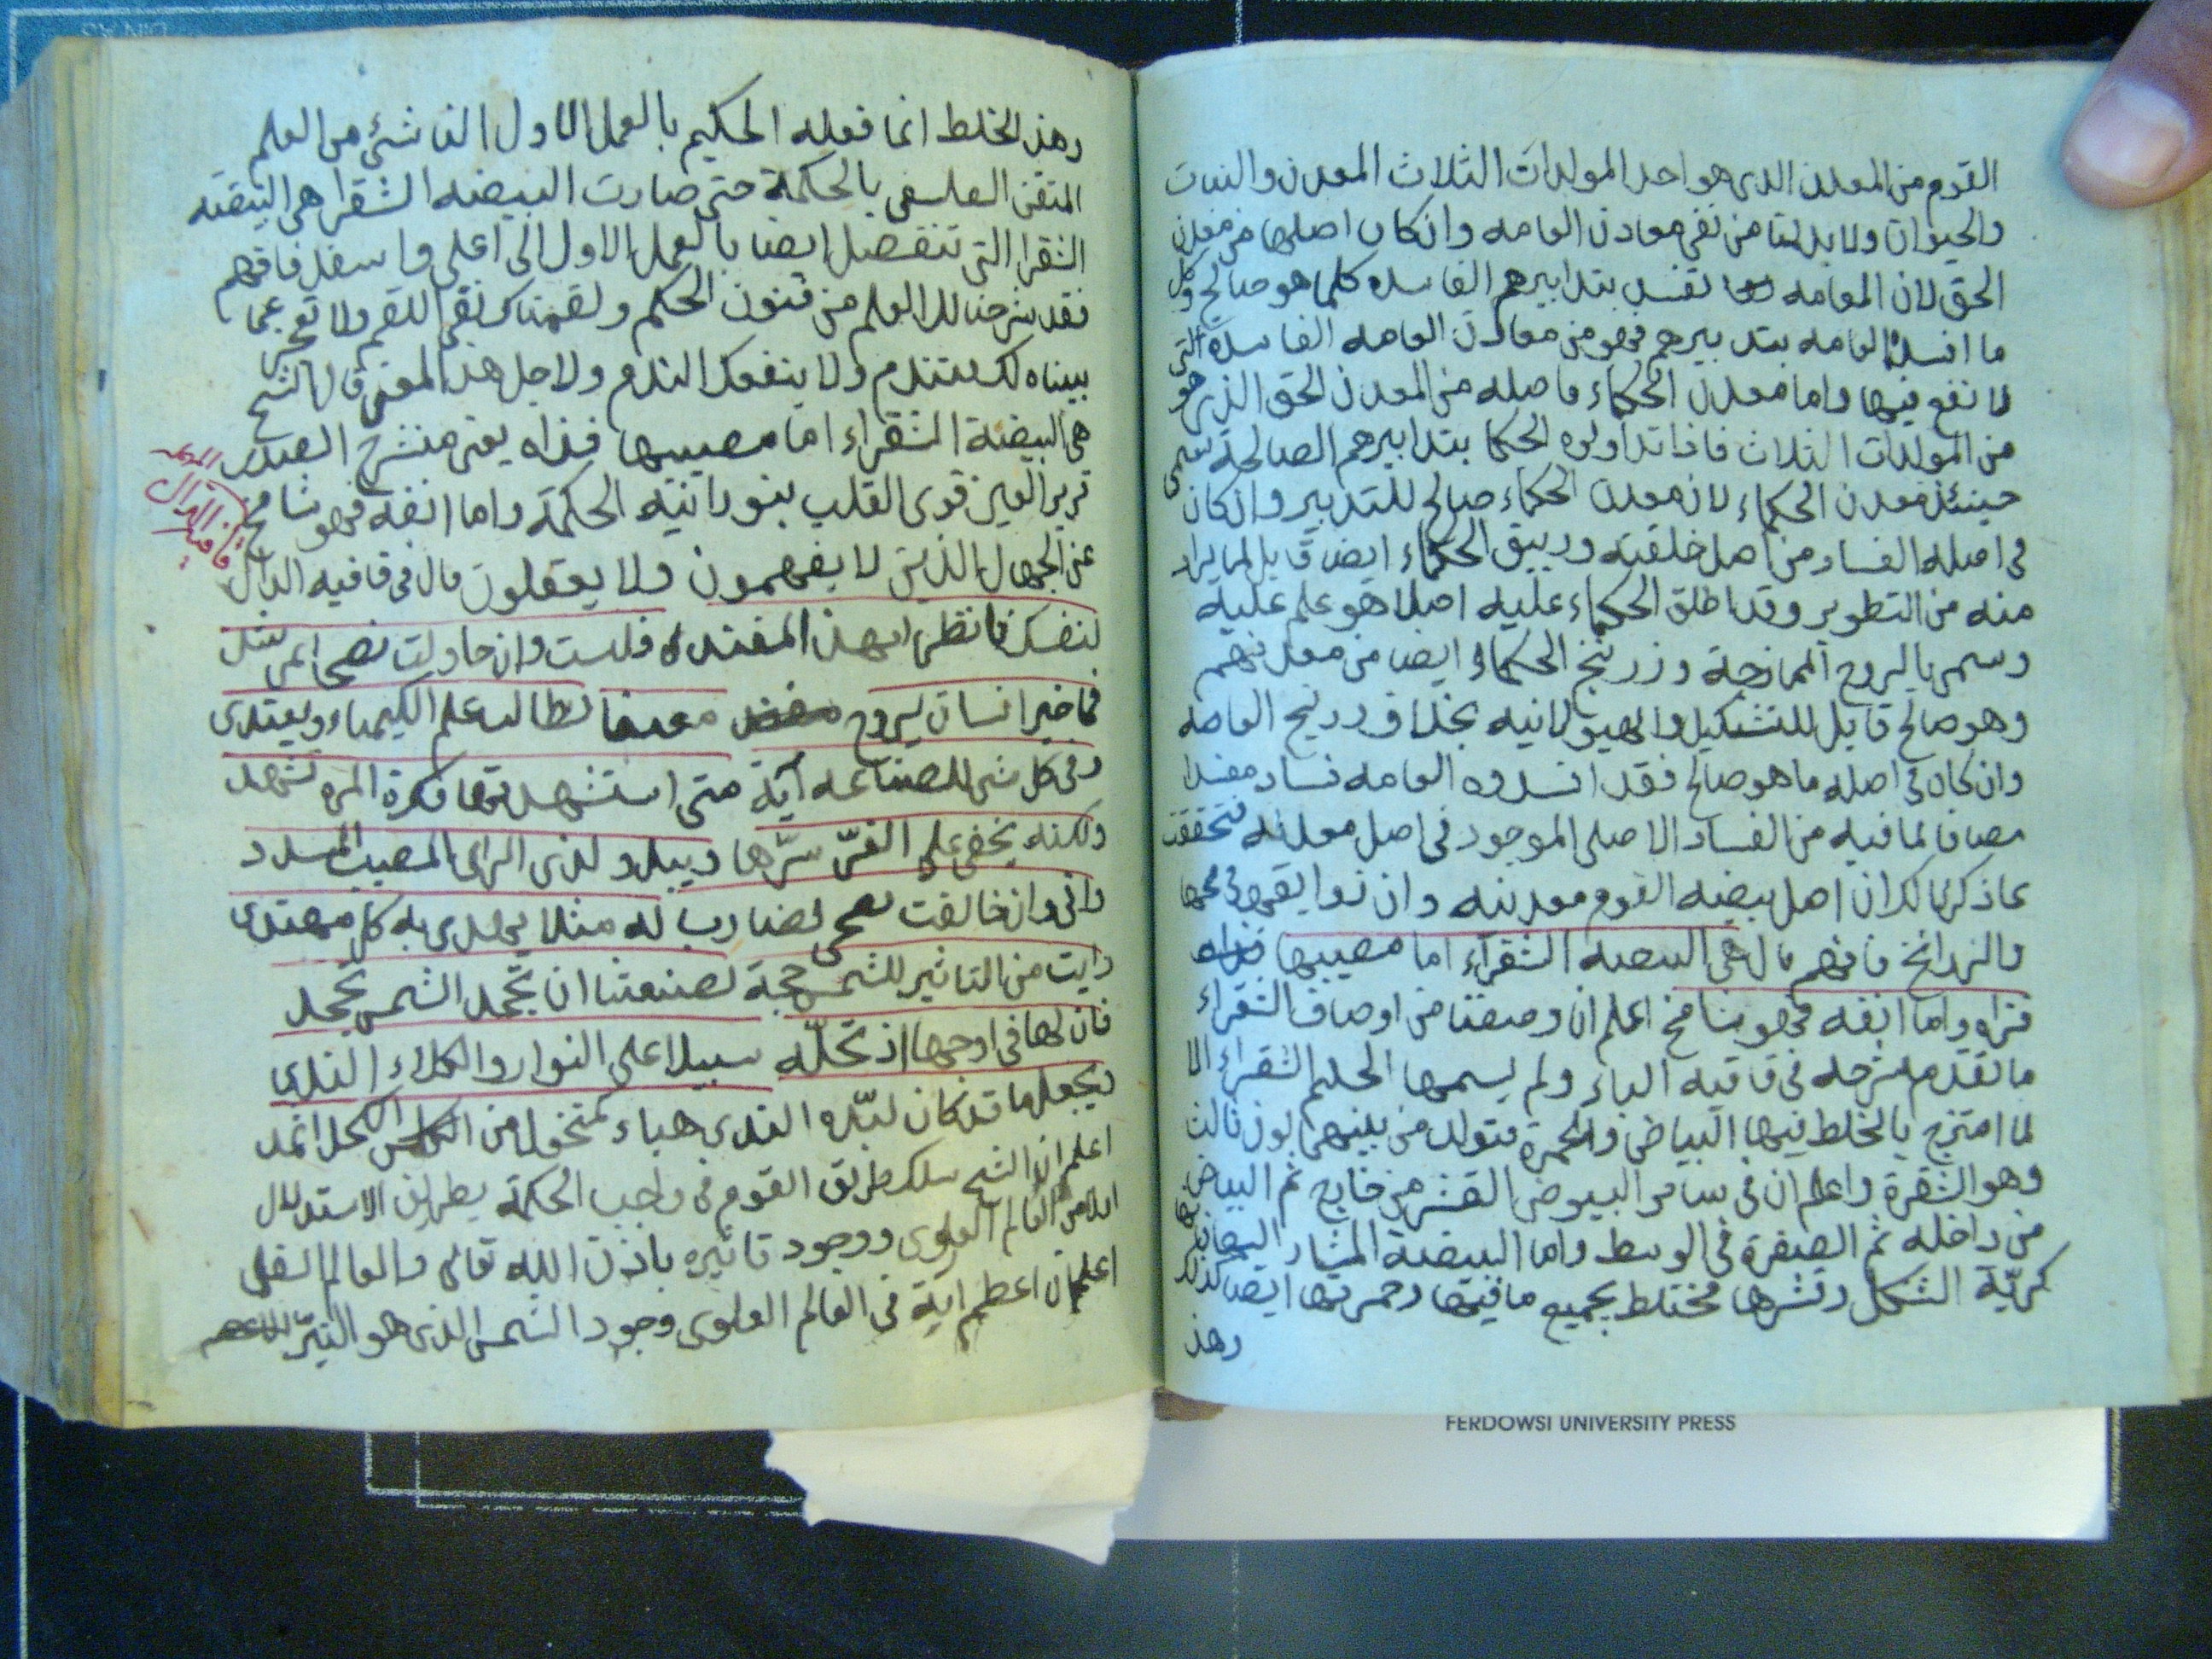 القوم من المعدن الذى هو احد المولدات الثلاث المعدن والنبات
والحيوان ولا بد لنا من نفى معادن العامه وان كان اصلها من معدن
الحق لان العامه تفسد بتدابيرهم الفاسده كلما هو صالح وكل
ما افسده العامه بتدبيرهم فهو من معادن العامه الفاسده التى
لا نفع فيها واما معدن الحكماء فاصله من المعدن الحق الذى هو
من المولدات الثلاث فاذا تداولوه الحكما بتدابيرهم الصالحة يسمى
حينئذ معدن الحكماء لان معدن الحكماء صالح للتدبير وان كان
فى اصله الفساد من اصل خلقته وزيبق الحكماء ايضا قابل لما يراد
منه من التطوير وقد اطلق الحكماء عليه اصلا هو علم عليه
وسمى بالروح الممازجة وزرنيخ الحكماء ايضا من معدنهم
وهو صالح قابل للتشكيل والهيولانيه بخلاف زرنيخ العامه
وان كان فى اصله ما هو صالح فقد افسدوه العامه فساد مفسدا
مضافا لما فيه من الفساد الاصلى الموجود فى اصل معدنه فتحققت
بما ذكرنا لك ان اصل بيضه القوم معدنيه وان
والزرانيخ فافهم قال هى البيضه الشقراء اما مصيبها فذاه
فتراه واما انفه فهو شامخ اعلم ان وصفنا من اوصاف الشقراء
ما تقدم شرحه فى قافيه الباء ولم يسمها الحكيم الشقراء الا
لما امتزج بالخلط فيها البياض والحمرة فتولد من بينهما لون ثالث
وهو الشقرة واعلم ان فى ساير البيوض القشر من خارج ثم البياض
من داخله ثم الصفرة فى الوسط واما البيضة المشار اليها فانها
كريّة الشكل وقشرها مختلط بجميع ما فيها وحمرتها ايضا كذلك
وهذ
وهذ الخلط انما فعله الحكيم بالعمل الاول الناشئ من العلم
المتقن الفلسفى بالحكمة حتى صارت البيضه الشقرا هى البيضه
الشقرا التى تنفصل ايضا بالعمل الاول الى اعلى واسفل فافهم
فقد شرحنا لك العلم من فنون الحكم ولقمناك نقى اللقم ولا تعجز عما
بيناه لك فتندم ولا ينفعك الندم ولاجل هذ المعنى قال الشيخ
هى البيضة الشقراء اما مصيبها فذاه يعنى منشرح الصدر
قرير العين قوى القلب بنورانية الحكمة واما انفه فهو شامخ
عن الجهال الذين لا يفهمون ولا يعقلون قال فى قافيه الدال
قافية الدال
لنفسك فانظر ايهذ المفتدى فلست وان حاولت نصحا بمرشد
فما خير انسان يروح معنفا لطالب علم الكيمياء ويعتدى
وفى كل شى للصناعه آية متى استشهدتها فكرة المرء تشهد
ولكنه يخفى على الغرّ سرّها ويبدو لذى الراى المصيب المسدد
وانى وان خالفت نصحى لضارب له مثلا يهدى به كل مهتدى
رايت من التاثير للشمس حجة لصنعتنا ان تجحد الشمس تجحد
فان لها فى اوجها اذ تحلّه سبيلا على النوار والكلاء الندى
يجعلها قد كان لبّده الندى هباء كمنخول من الكحل اثمد
اعلم ان الشيخ سلك طريق القوم فى واجب الحكمة بطريق الاستدلال
اولا من العالم العلوى ووجود تاثيره باذن الله تعالى والعالم السفلى
اعلم ان اعظم اية فى العالم العلوى وجود الشمس الذى هو النيّر الاعظم
FERDOWSI UNIVERSITY PRESS